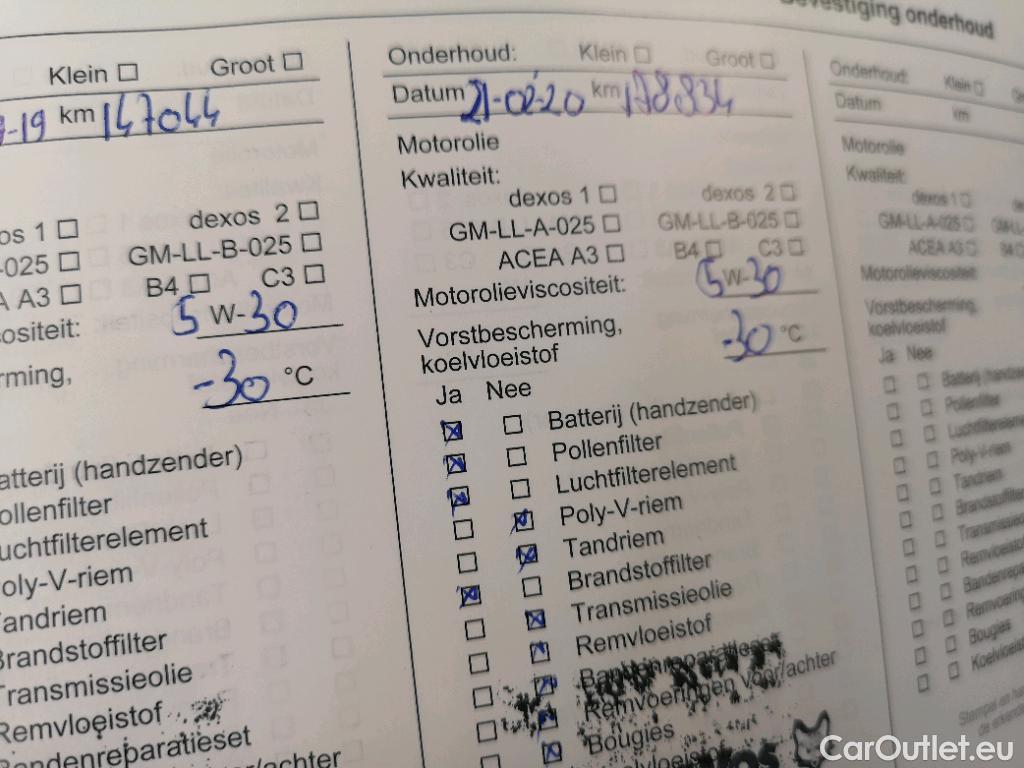 Bevestiging onderhoud
Klein Groot
-19 km 147044
os 1 dexos 2
-025 GM-LL-B-025
A3 B4 C3
cositeit: 5 W-30
rming,
-30 °C
atterij (handzender)
ollenfilter
uchtfilterelement
oly-V-riem
andriem
Brandstoffilter
Transmissieolie
Remvloeistof
Bandenreparatieset
or/achter
Onderhoud: Klein Groot
Datum 21-02-20 km 178934
Motorolie
Kwaliteit:
dexos 1 dexos 2
GM-LL-A-025 GM-LL-B-025
ACEA A3 B4 C3
Motorolieviscositeit: 5 W-30
Vorstbescherming,
koelvloeistof -30 °C
Ja Nee
Batterij (handzender)
Pollenfilter
Luchtfilterelement
Poly-V-riem
Tandriem
Brandstoffilter
Transmissieolie
Remvloeistof
Bandenreparatieset
Remvoeringen voor/achter
Bougies
Koelvloeistof
Onderhoud: Klein
Datum km
Motorolie
Kwaliteit:
dexos 1
GM-LL-A-025
ACEA A3
Motorolieviscositeit:
Vorstbescherming,
koelvloeistof
Ja Nee
Batterij
Pollenfilter
Luchtfilterelement
Poly-V-riem
Tandriem
Brandstoffilter
Transmissie
Remvloeistof
Bandenrepa
Remvoering
Bougies
Koelvloeist
CarOutlet.eu